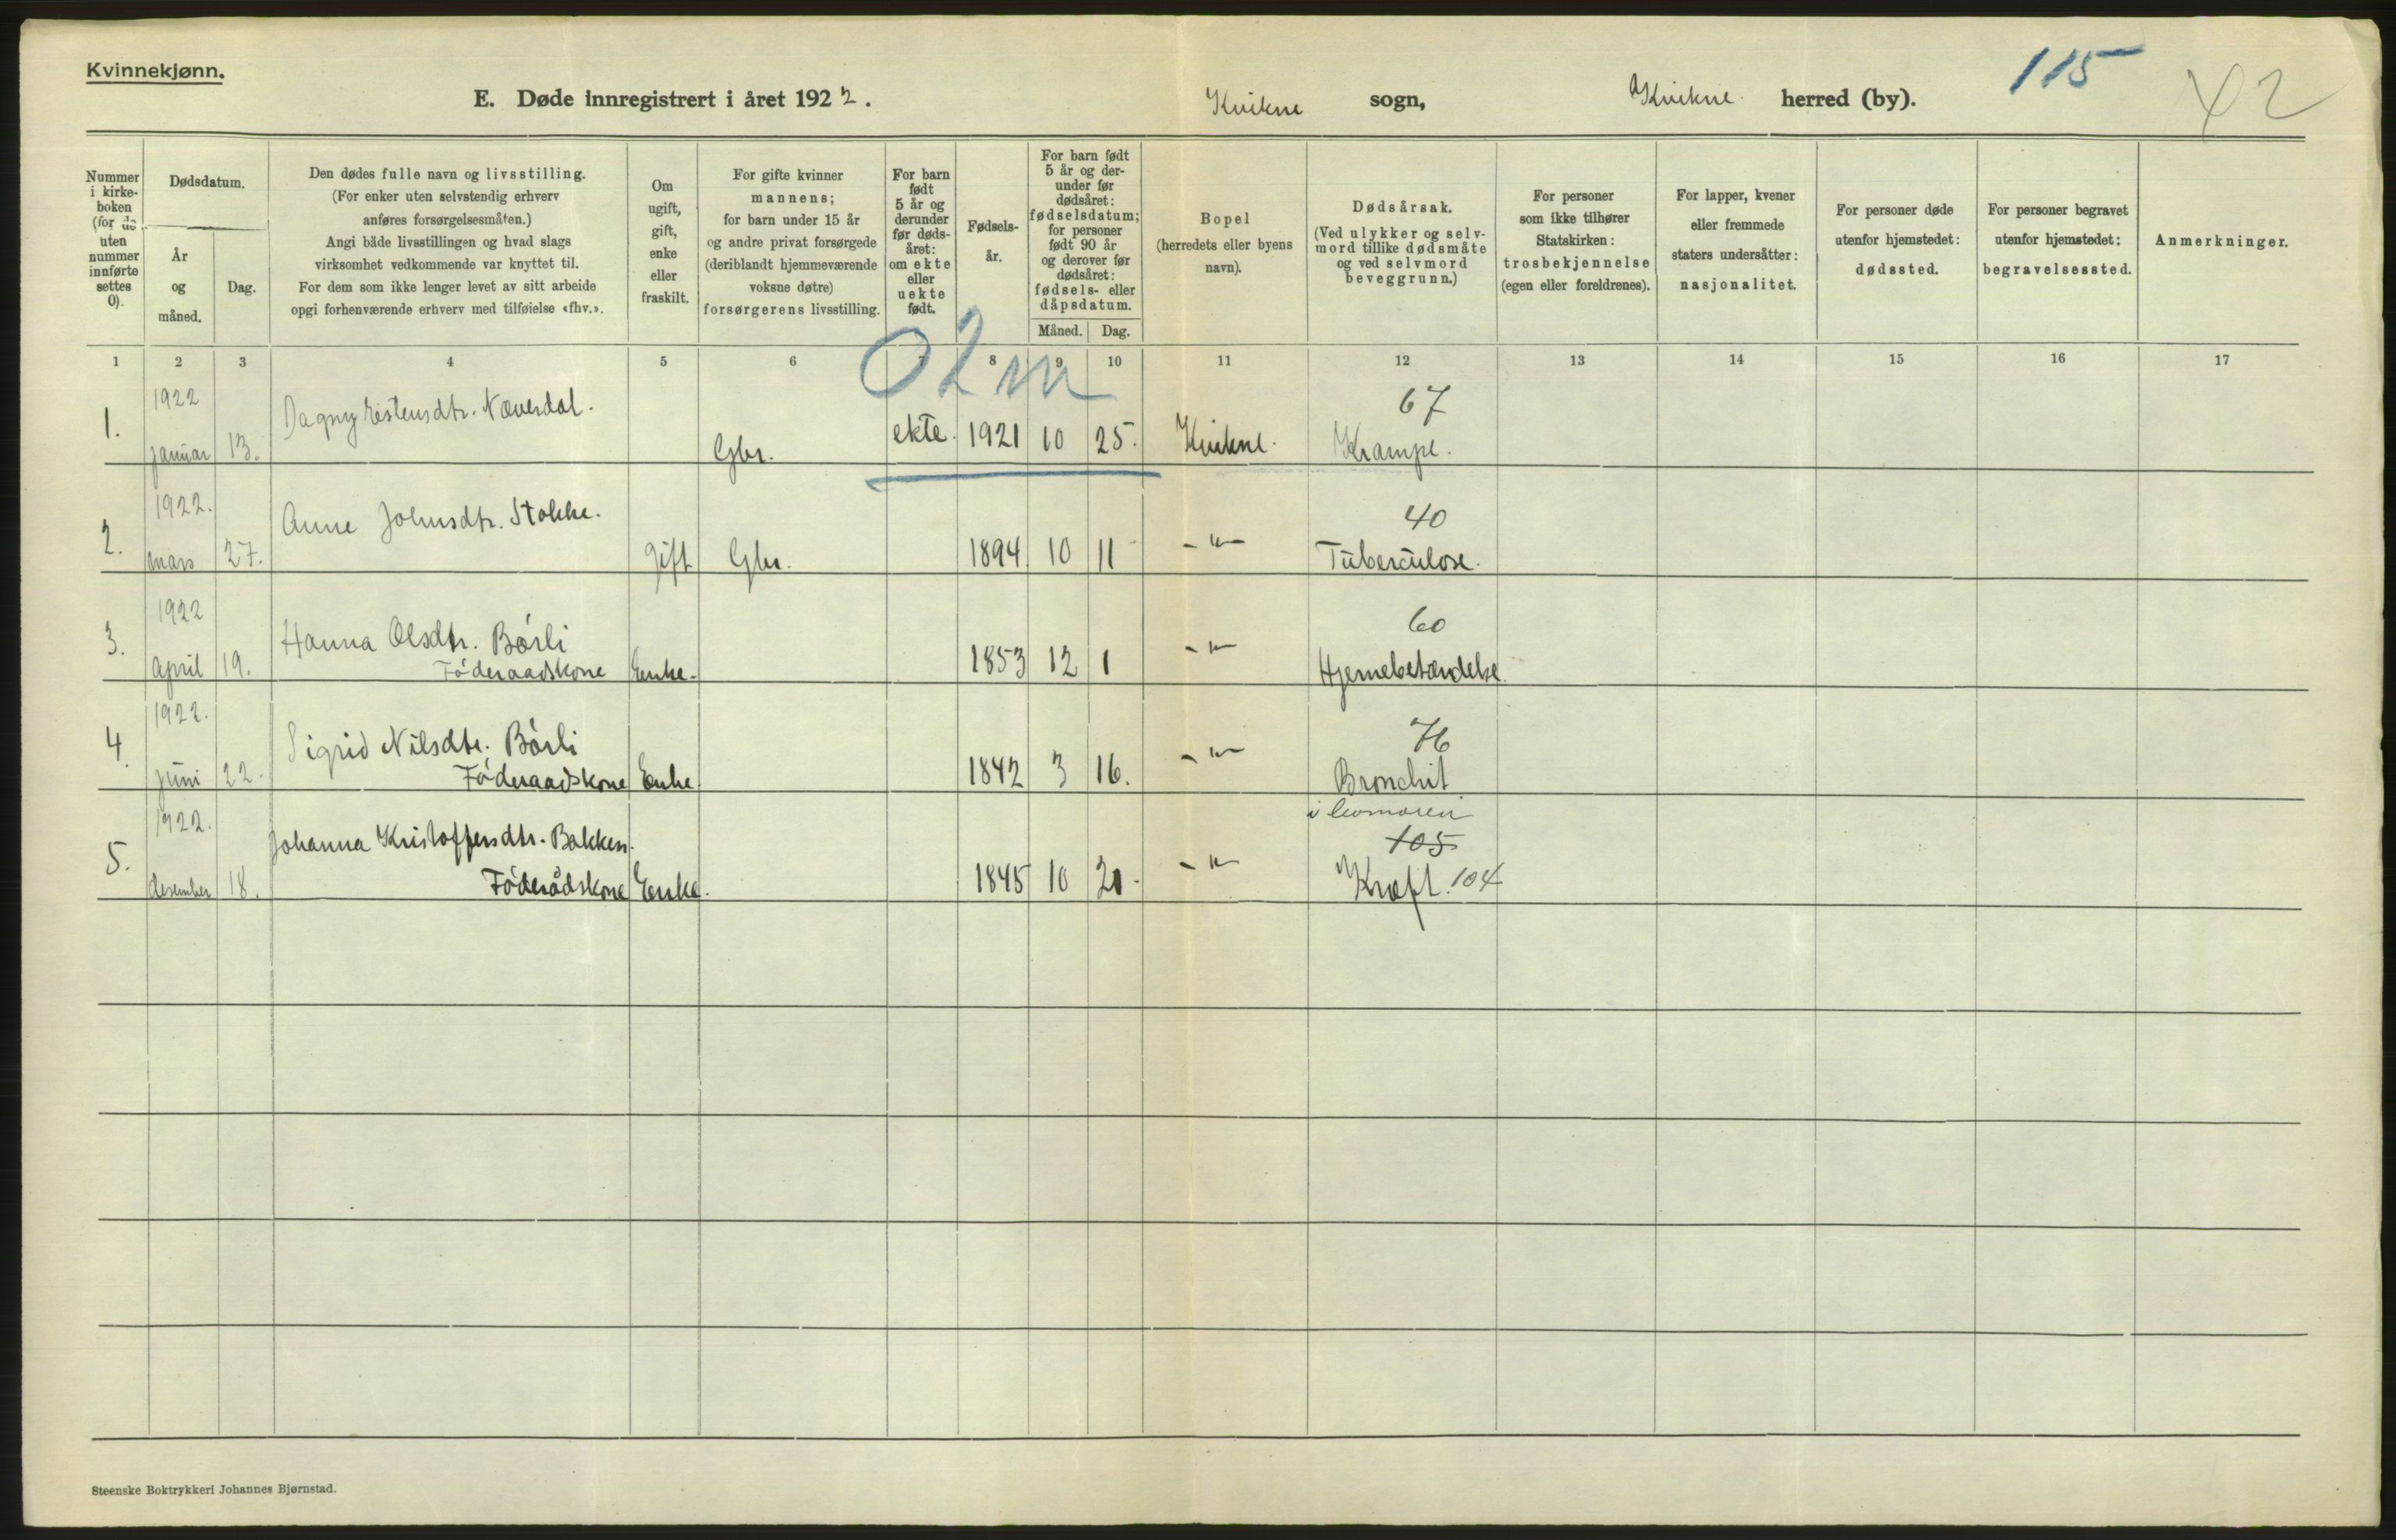 Kvinnekjønn.
E. Døde innregistrert i året 1922.
Kvikne sogn, Kvikne herred (by).
115
42
Nummer i kirkeboken (for de uten nummer innførte settes 0).
Dødsdatum.
År og måned.
Dag.
Den dødes fulle navn og livsstilling.
(For enker uten selvstendig erhverv
anføres forsørgelsesmåten.)
Angi både livsstillingen og hvad slags
virksomhet vedkommende var knyttet til.
For dem som ikke lenger levet av sitt arbeide
opgi forhenværende erhverv med tilføielse «fhv.».
Om ugift, gift, enke eller fraskilt.
For gifte kvinner
mannens;
for barn under 15 år
og andre privat forsørgede
(deriblandt hjemmeværende
voksne døtre)
forsørgerens livsstilling.
For barn født 5 år og derunder før dødsåret: om ekte eller uekte født.
Fødselsår.
For barn født 5 år og derunder før dødsåret: fødselsdatum; for personer født 90 år og derover før dødsåret: fødsels- eller dåpsdatum.
Måned. Dag.
Bopel
(herredets eller byens
navn).
Dødsårsak.
(Ved ulykker og selvmord tillike dødsmåte og ved selvmord beveggrunn.)
For personer
som ikke tilhører
Statskirken:
trosbekjennelse
(egen eller foreldrenes).
For lapper, kvener
eller fremmede
staters undersåtter:
nasjonalitet.
For personer døde
utenfor hjemstedet:
dødssted.
For personer begravet
utenfor hjemstedet:
begravelsessted.
Anmerkninger.
1 2 3 4 5 6 7 8 9 10 11 12 13 14 15 16 17
02m
1922 Dagny Eistensdtr. Næverdal. 67
1. januar 13. Gbr. ekte. 1921 10 25. Kvikne. Krampe.
1922. Anne Johnsdtr. Stokke. 40
2. mars 27. gift Gbr. 1894. 10 11 -"- Tuberculose.
1922 Hanna Olsdtr. Børli 60
3. april 19. Föderaadskone Enke. 1853 12 1 -"- Hjernebetændelse.
1922. Sigrid Nilsdtr. Børli 76
4. juni 22. Föderaadskone Enke 1842 3 16. -"- Bronchit
1922. Johanna Kristoffersdtr. Bakken. 105
5. desember 18. Föderådskone Enke. 1845 10 20. -"- Kræft. 104
Steenske Boktrykkeri Johannes Bjørnstad.